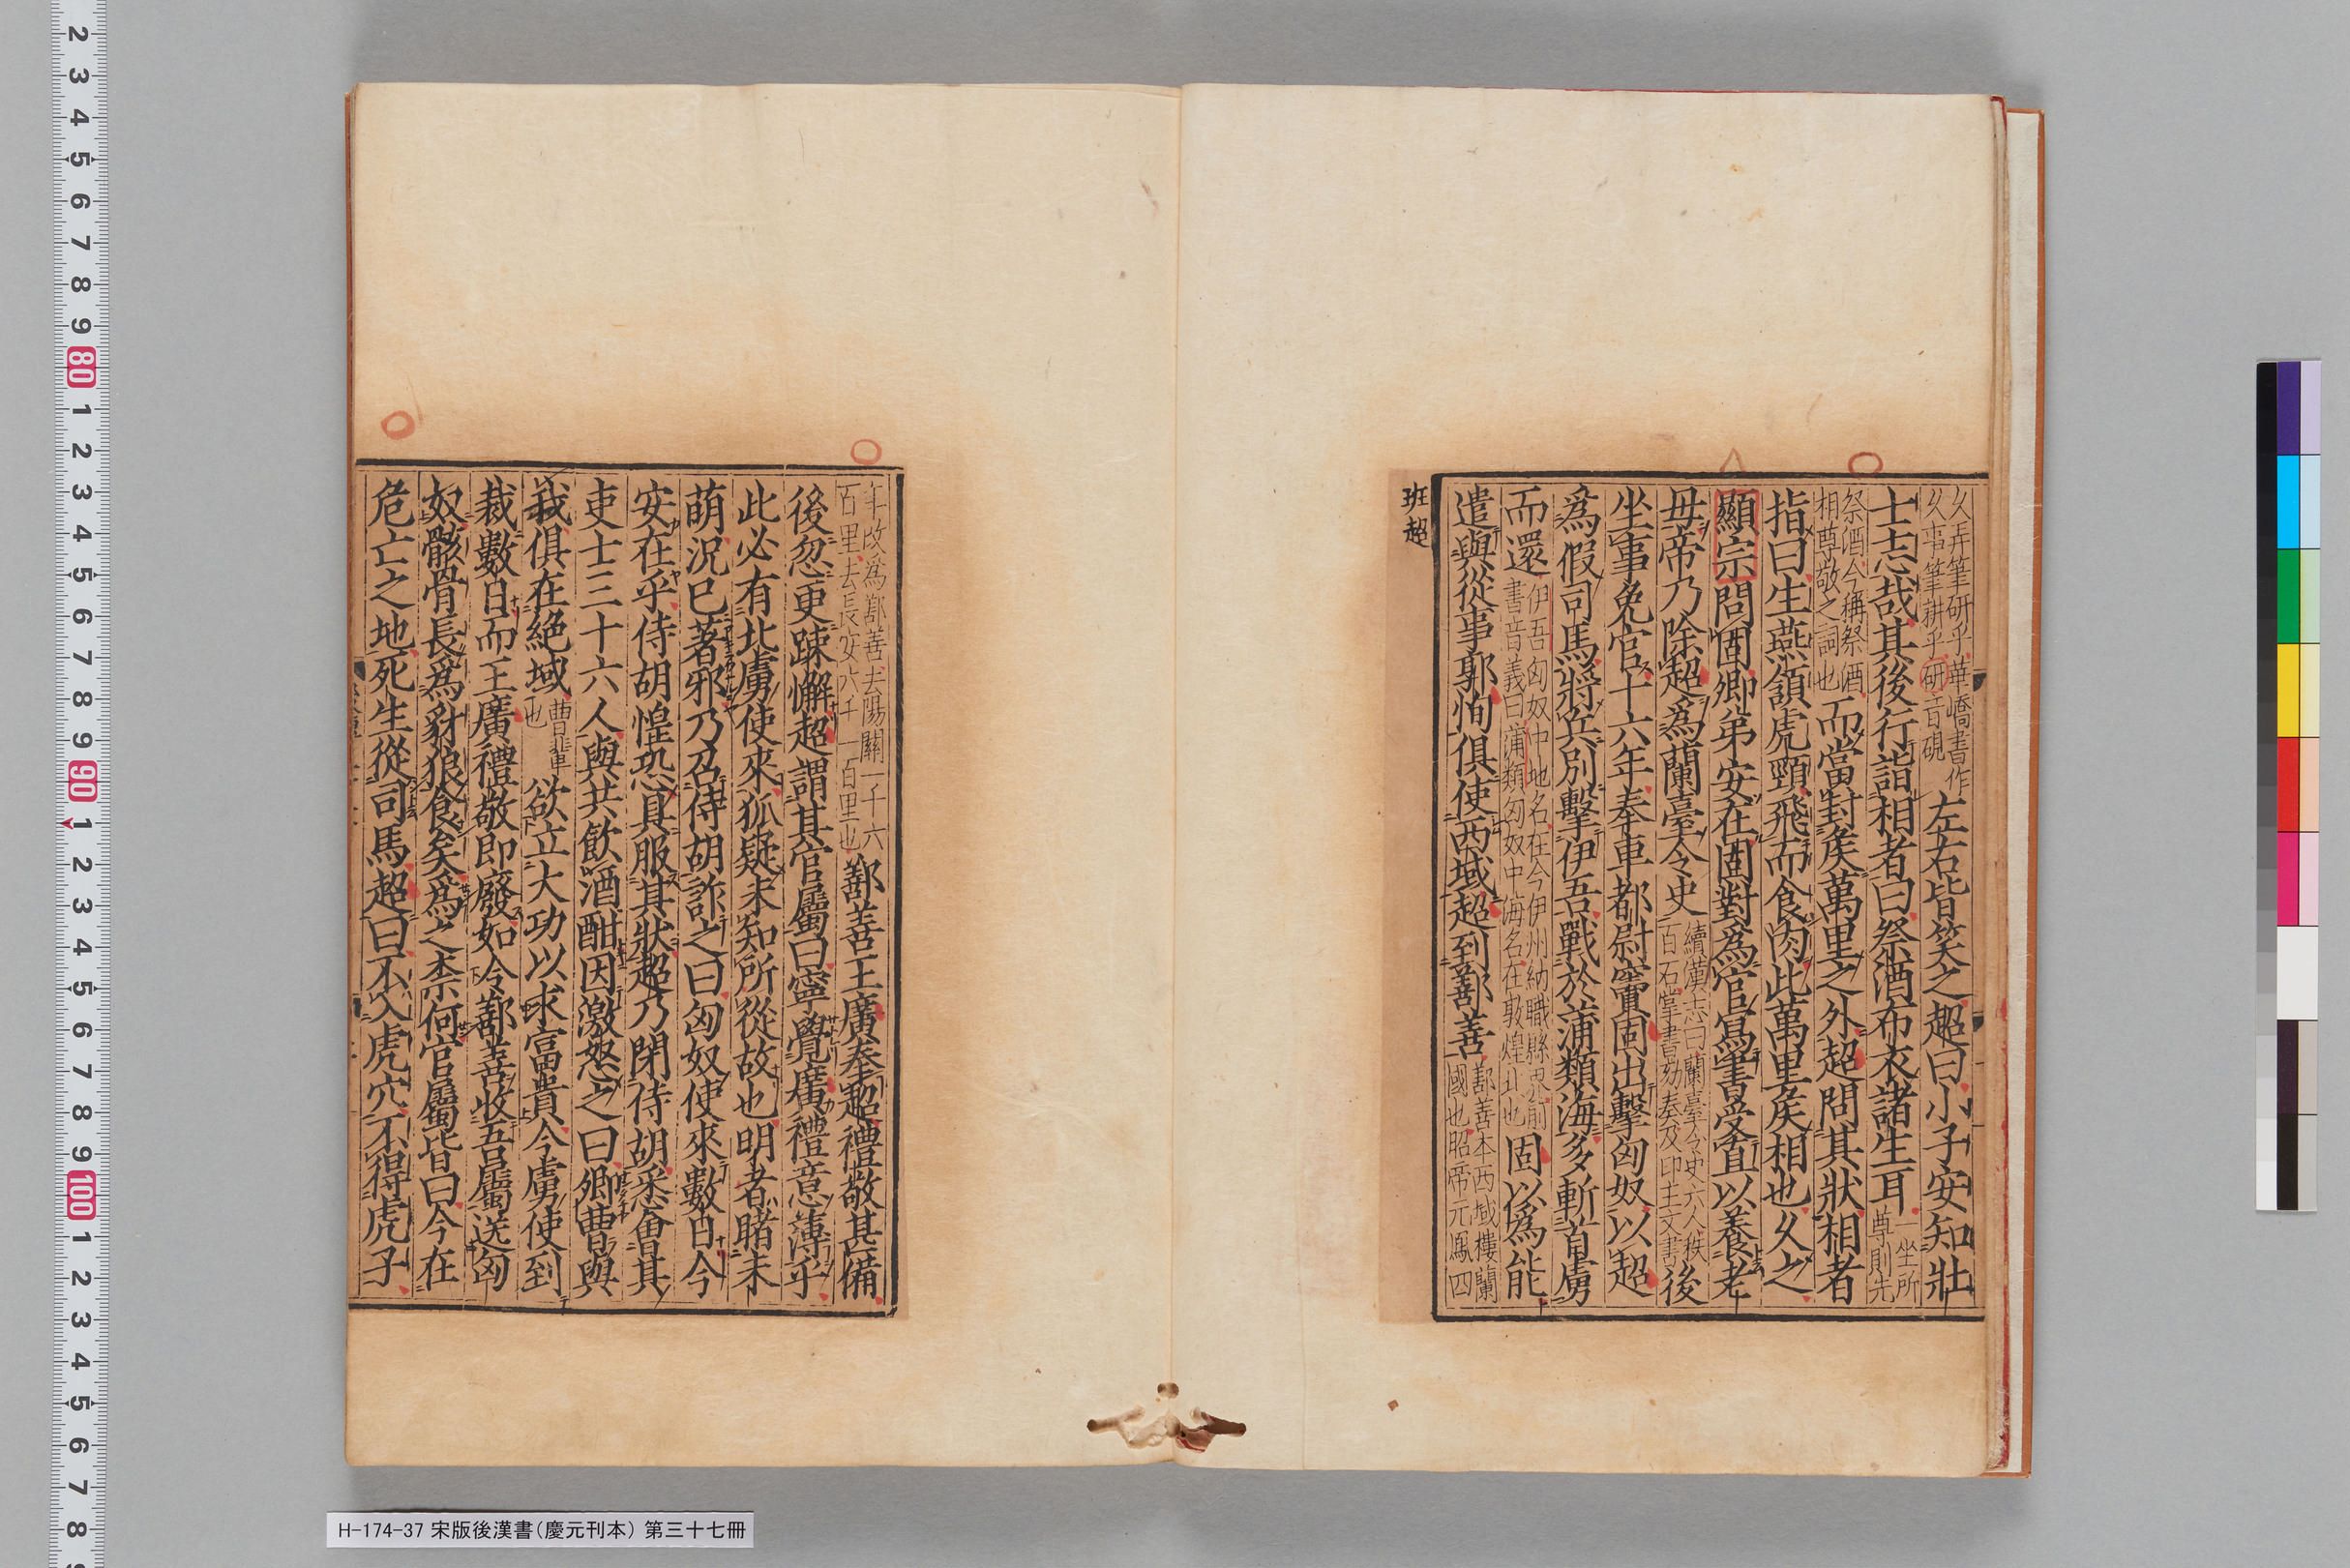 久弄筆研乎華嶠書作
久事筆耕乎研音硯
左右皆笑之超曰小子安知壯
士志哉其後行詣相者曰祭酒布衣諸生耳
一坐所
尊則先
祭酒今稱祭酒
相尊敬之詞也
而當封矦萬里之外超問其狀相者
指曰生燕頷虎頸飛而食肉此萬里矦相也久之
顯宗問固卿弟安在固對爲官寫書受直以養老
母帝乃除超爲蘭臺令史
續漢志曰蘭臺令史六人秩
百石掌書劾奏及印主文書
後
坐事免官十六年奉車都尉竇固出擊匈奴以超
爲假司馬將兵別擊伊吾戰於蒲類海多斬首虜
而還
伊吾匈奴中地名在今伊州納職縣界前
書音義曰蒲類匈奴中海名在敦煌北也
固以爲能
遣與從事郭恂俱使西域超到鄯善
鄯善本西域樓蘭
國也昭帝元鳳四
班超
年改爲鄯善去陽關一千六
百里去長安六千一百里也
鄯善王廣奉超禮敬甚備
後忽更踈懈超謂其官屬曰寧覺廣禮意薄乎
此必有北虜使來狐疑未知所從故也明者睹未
萌況已著邪乃召侍胡詐之曰匈奴使來數日今
安在乎侍胡惶恐具服其狀超乃閉侍胡悉會其
吏士三十六人與共飲酒酣因激怒之曰卿曹與
我俱在絕域
曹輩
也
欲立大功以求富貴今虜使到
裁數日而王廣禮敬即廢如令鄯善收吾屬送匈
奴骸骨長爲豺狼食矣爲之柰何官屬皆曰今在
危亡之地死生從司馬超曰不入虎穴不得虎子
H-174-37 宋版後漢書（慶元刊本） 第三十七冊